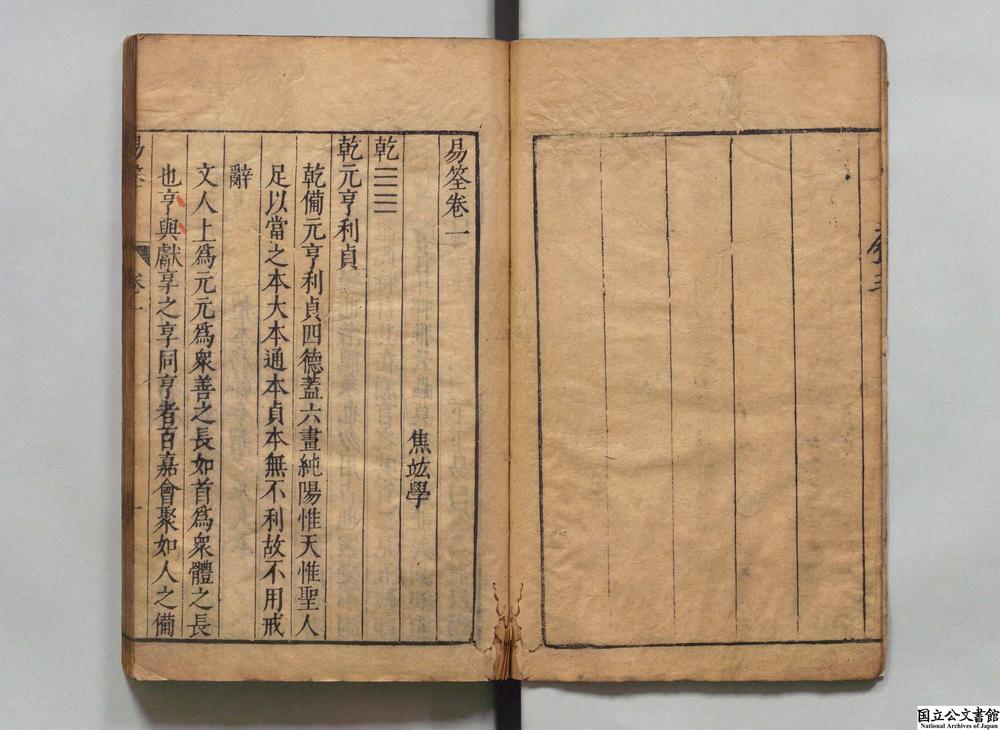 易筌卷一
焦竑學
乾䷀
乾元亨利貞
乾備元亨利貞四德蓋六畫純陽惟天惟聖人
足以當之本大本通本貞本無不利故不用戒
辭
文人上爲元元爲衆善之長如首爲衆體之長
也亨與獻享之享同亨者百嘉會聚如人之備
易筌
卷一
一
国立公文書館
National Archives of Japan